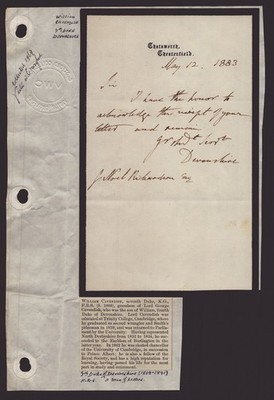 William
Cavendish
7th Duke
Devonshire
Chatsworth,
Chesterfield.
May 12. 1883
Sir
I have the honor to
acknowledge the receipt of your
letter and
Devonshire
J. Noel Richardson Esq
WILLIAM CAVENDISH, seventh Duke, K.G.,
F.R.S. (b. 1808), grandson of Lord George
Cavendish, who was the son of William, fourth
Duke of Devonshire. Lord Cavendish was
educated at Trinity College, Cambridge, where
he graduated as second wrangler and Smith's
prizeman in 1829, and was returned to Parlia-
ment by the University. Having represented
North Derbyshire from 1832 to 1834, he suc-
ceeded to the Earldom of Burlington in the
latter year. In 1862 he was elected chancellor
of the University of Cambridge, in succession
to Prince Albert; he is also a fellow of the
Royal Society; and has a high reputation for
learning, having passed his life for the most
part in study and retirement.
7th Duke of Devonshire (1808-1891)